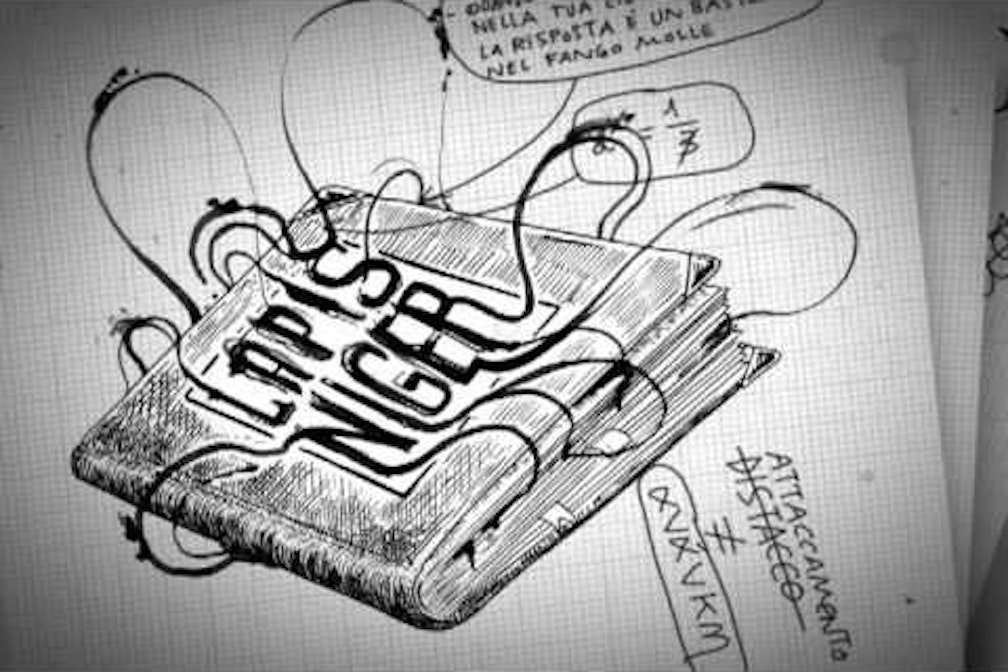 NELLA TUA
LA RISPOSTA È UN
NEL FANGO MOLLE
= 1/3
LAPIS
NIGER
ATTACCAMENTO
≠
DISTACCO